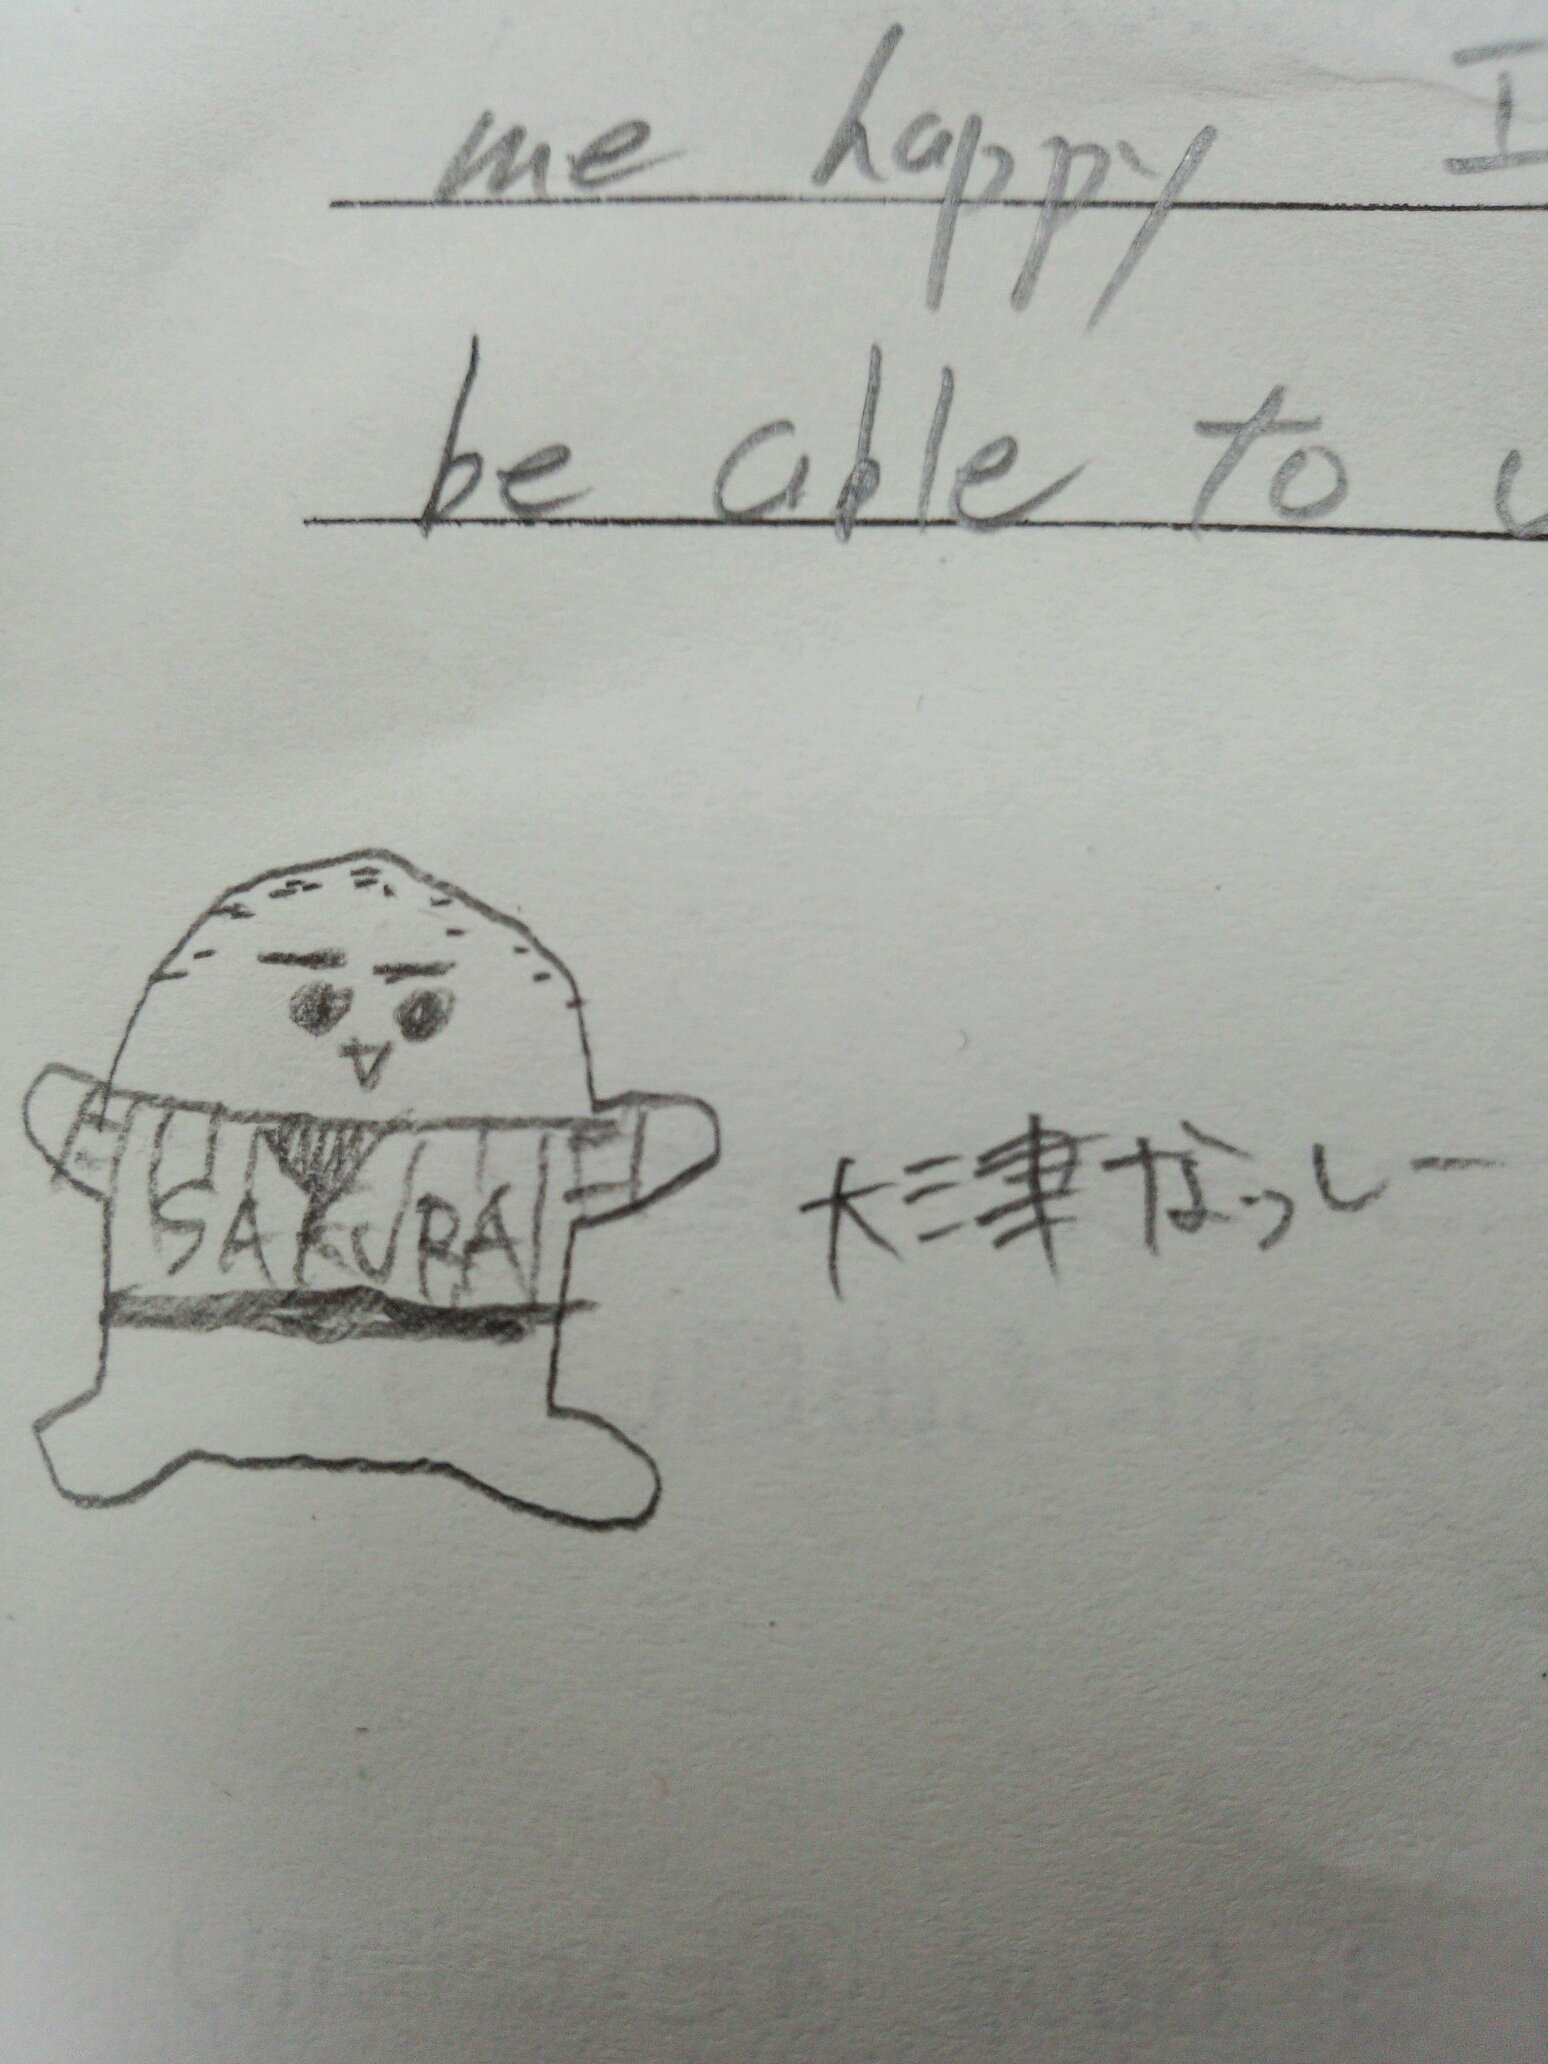 me happy I
be able to
SAKURA
大津なっしー